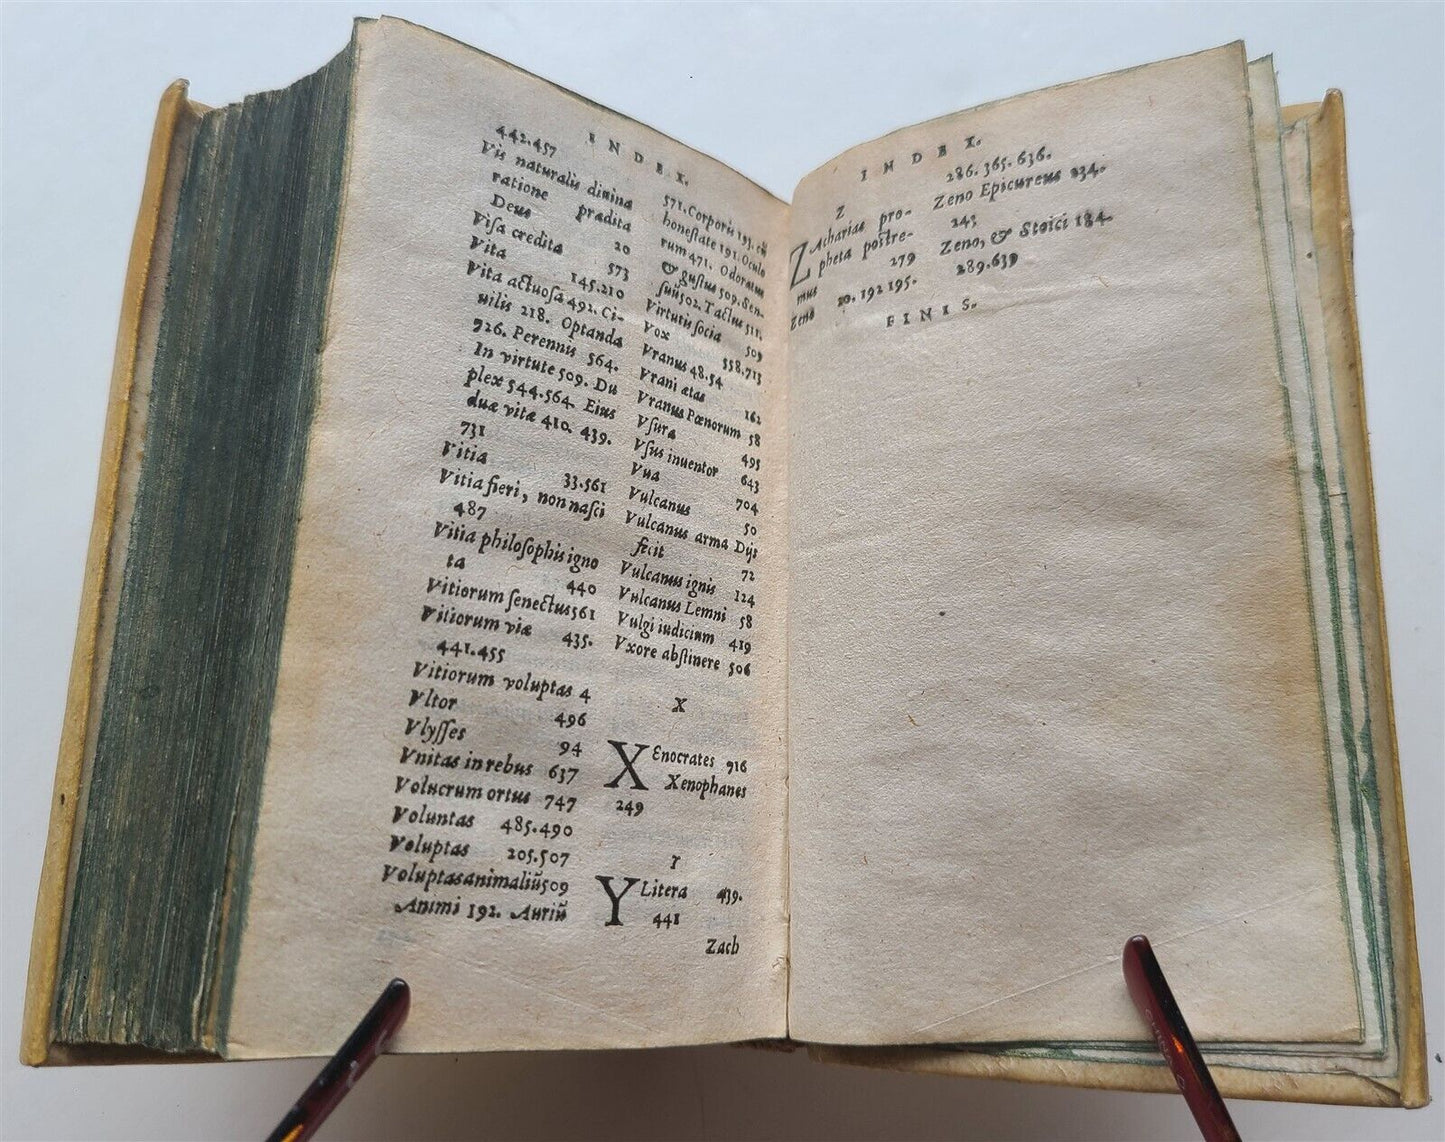 INDEX.
442.457
Vis naturalis diuina
ratione prædita
Deus 20
Visa credita 573
Vita 145.210
Vita actuosa 492. Ci-
uilis 218. Optanda
726. Perennis 564.
In virtute 509. Du
plex 544.564. Eius
duæ vitæ 410. 439.
731
Vitia 33.561
Vitia fieri, non nasci
487
Vitia philosophis igno
ta 440
Vitiorum senectus 561
Vitiorum viæ 435.
441.455
Vitiorum voluptas 4
Vltor 496
Vlysses 94
Vnitas in rebus 637
Volucrum ortus 747
Voluntas 485.490
Voluptas 205.507
Voluptas animaliũ 509
Animi 192. Auriũ
571. Corporis 193. cũ
honestate 191. Oculo
rum 471. Odoratus
& gustus 509. Sen-
suũ 502. Tactus 511.
Virtutis socia 509
Vox 558.713
Vranus 48.54
Vrani ætas 162
Vranus Pœnorum 58
Vsura 495
Vsus inuentor 643
Vua 704
Vulcanus 50
Vulcanus arma Dijs
fecit 72
Vulcanus ignis 124
Vulcanus Lemni 58
Vulgi iudicium 419
Vxore abstinere 506
X
XEnocrates 716
Xenophanes
249
Y
YLitera 439.
441
Zach
INDEX.
Z
ZAchariae pro-
pheta postre-
mus 279
Zeno 20. 192 195.
286. 365. 636.
Zeno Epicureus 234.
243
Zeno, & Stoici 184.
289.639
FINIS.